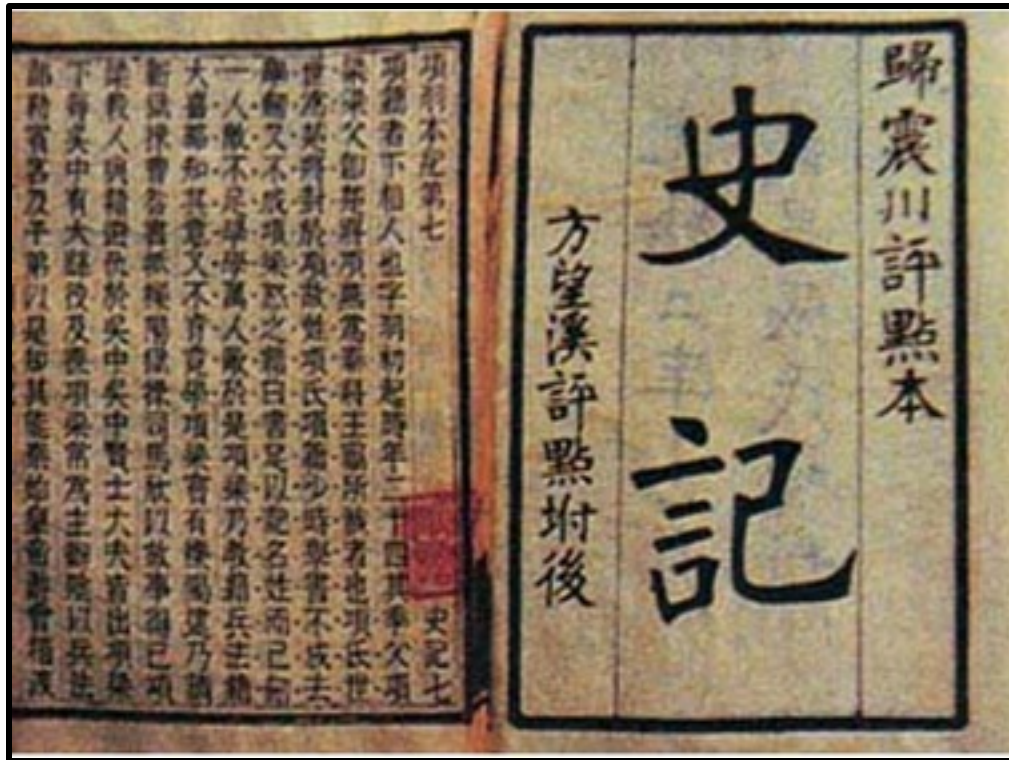 歸震川評點本
史記
方望溪評點坿後
項羽本紀第七 史記七
項籍者下相人也字羽初起時年二十四其季父項
梁梁父卽楚將項燕爲秦將王翦所戮者也項氏世
世爲楚將封於項故姓項氏項籍少時學書不成去
學劍又不成項梁怒之籍曰書足以記名姓而已劍
一人敵不足學學萬人敵於是項梁乃教籍兵法籍
大喜略知其意又不肯竟學項梁嘗有櫟陽逮乃請
蘄獄掾曹咎書抵櫟陽獄掾司馬欣以故事得已項
梁殺人與籍避仇於吳中吳中賢士大夫皆出項梁
下每吳中有大繇役及喪項梁常爲主辦陰以兵法
部勒賓客及子弟以是知其能秦始皇帝游會稽渡